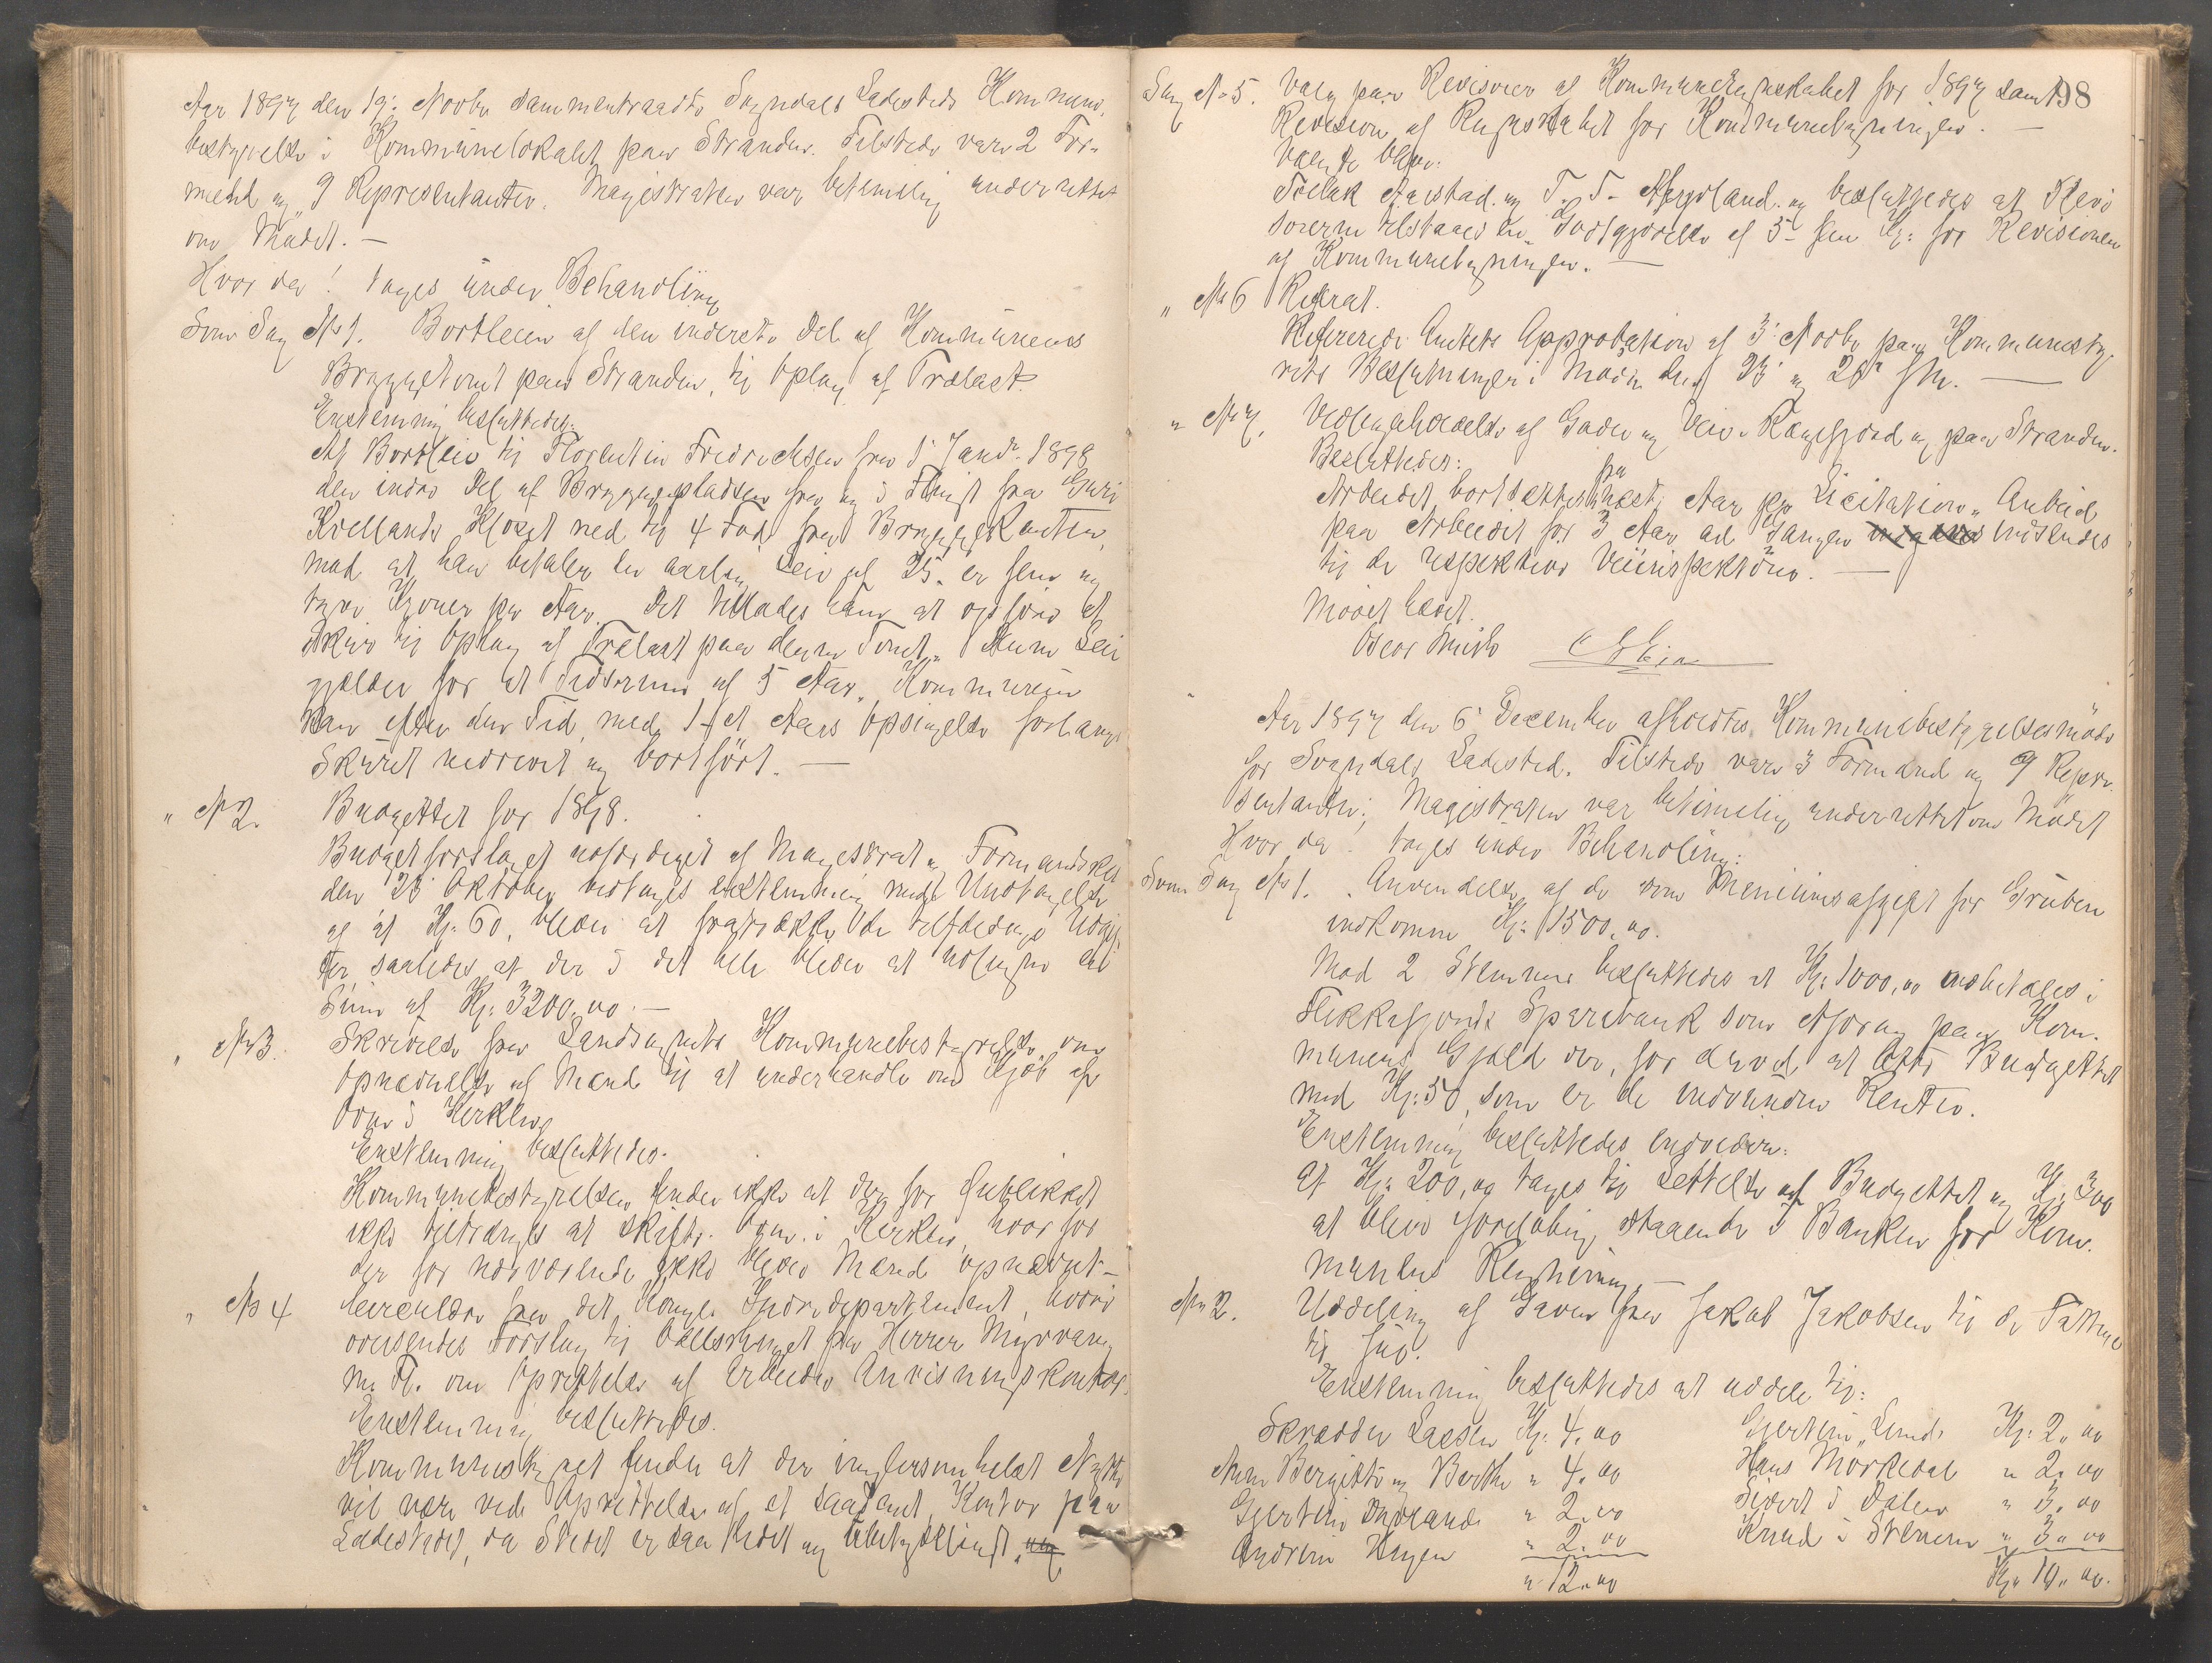 Aar 1897 den 19: Novbr sammentraadte Sogndals Ladesteds Kommune
bestyrelse i Kommunelokalet paa Stranden. Tilstede vare 2 For-
mænd og 9 Repræsentanter. Magistraten var betimelig underrettet
om Mødet. —
Hvor da! toges under Behandling
Som Sag No 1. Bortleien af den inderste Del af Kommunens
Bryggetomt paa Stranden, til Oplag af Trælast.
Enstemmig besluttedes:
At Bortleie til Florentin Fredriksen fra 1' Jandr. 1898
den indre Del af Bryggepladsen fra og i Flugt fra
Kiellands Kloset ned til 4 Fod fra Bryggekanten,
mod at han betaler en aarlig Leie af 25 er fem og
tyve Kroner pr Aar. Det tillades ham at opføre et
Skur til Oplag af Trælast paa denne Tomt. Denne Leie
gjælder for et Tidsrum af 5 Aar. Kommunen
kan efter den Tid, med 1 - et Aars Opsigelse forlange
Skuret nedrevet og bortført. —
" No 2. Budgettet for 1898.
Budgetforslaget udfærdiget af Magistrat og Formandskab
den 23' Oktober vedtoges enstemmig med Undtagelse
af at Kr. 60, bliver at fratrække de tilfældige Udgif-
ter, saaledes at der i det hele bliver at udligne en
Sum af Kr. 3200,00. —
" No 3. Skrivelse fra Landsognets Kommunebestyrelse om
Opnævnelse af Mænd til at underhandle om Kjøb af
Ovn i Kirken
Enstemmig besluttedes.
Kommunebestyrelsen finder ikke at der for Øieblikket
ikke tiltrænges at skifte Ovn i Kirken, hvorfor
der for nærværende ikke bliver Mænd opnævnt —
" No 4 Circulære fra det Kongl. Indredepartement, hvori
oversendes Forslag til fra Herrer Myrvang
m. Fl. om Oprettelse af Arbeider Anvisningskontor.
Enstemmig besluttedes.
Kommunestyret finder at der ingensomhelst Nytte
vil være ved Oprettelse af et saadant Kontor paa
Ladestedet, da Stedet er saa lidet og ubetydeligt.
Sag No 5. Valg paa Revisorer af Kommuneregnskabet for 1897 samt 198
Revision af Regnskabet for Kommunebygningen. —
Valgte blev:
Tollak Aarstad og T. T. og besluttedes at Revi
sorerne tilstaaes en Godtgjørelse af 5 - fem Kr: for Revisionen
af Kommunebygningen. —
" No 6 Referat.
Refereredes Amtets Approbation af 3' Novbr paa Kommunesty-
rets Beslutninger i Møder den 23' og 28' f.M. —
" No 7. Vedligeholdelse af Gader og Veie i Rægefjord og paa Stranden.
Besluttedes:
Arbeidet bortsættes fra næste Aar pr Licitation. Anbud
paa Arbeidet for 3 Aar ad Gangen indsendes
til de respektive Veiinspektører. —
Mødet hævet.
Aar 1897 den 6' December afholdtes Kommunebestyrelsesmøde
for Sogndals Ladested. Tilstede vare 3 Formænd og 9 Repræ-
sentanter; Magistraten var betimelig underrettet om Mødet
Hvor da! toges under Behandling:
Som Sag No 1. Anvendelse af de som Præmiumsafgift for Gruben
indkomne Kr: 1500,00.
Mod 2 Stemmer besluttedes at Kr: 1000,00 indbetales i
Flekkefjords Sparebank som Afdrag paa Kom-
munens Gjæld der, for derved at lette Budgettet
med Kr: 50, som er de indvundne Renter.
Enstemmig besluttedes endvidere:
at Kr: 200,00 tages til Lettelse af Budgettet og Kr. 300
at blive foreløbig staaende i Banken for Kom-
munens Regning. —
" No 2. Uddeling af Gaver fra Jakob Jakobsen til de Fattige
til Jul.
Enstemmig besluttedes at uddele til:
Skrædder Larsen Kr. 4,00 Gjertine Lund Kr. 2,00
Anne Bergitte og Berthe " 4,00 Hans Mørkedal " 2,00
Gjertine " 2,00 Sivert i Dalen " 3,00
Andrine Hagen " 2,00 Knud i Stenene " 3,00
" 12,00 Kr. 10,00.